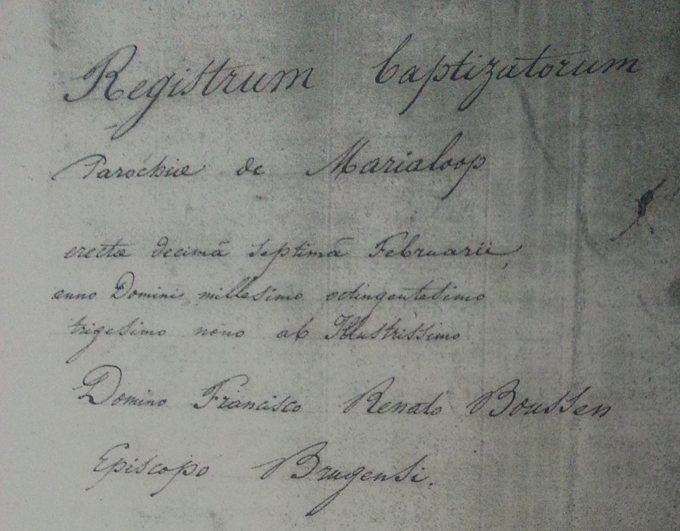 Registrum baptizatorum
Parochiæ de Marialoop
erectæ decimâ septimâ Februarii,
anno Domini millesimo octingentesimo
trigesimo nono ab Illustrissimo
Domino Francisco Renato Boussen
Episcopo Brugensi.